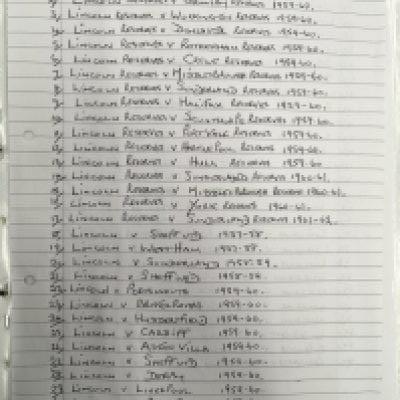 Lincoln Reserves v Reserves 1959-60.
3/ Lincoln Reserves v Workington Reserves 1959-60.
4/ Lincoln Reserves v Doncaster Reserves 1959-60.
5/ Lincoln Reserves v Rotherham Reserves 1959-60.
6/ Lincoln Reserves v Reserves 1959-60.
7/ Lincoln Reserves v Middlesbrough Reserves 1959-60.
8/ Lincoln Reserves v Sunderland Reserves 1959-60.
9/ Lincoln Reserves v Halifax Reserves 1959-60.
10/ Lincoln Reserves v Scunthorpe Reserves 1959-60.
11/ Lincoln Reserves v Port Vale Reserves 1959-60.
12/ Lincoln Reserves v Hartlepool Reserves 1959-60.
13/ Lincoln Reserves v Hull Reserves 1959-60.
14/ Lincoln Reserves v Sunderland Reserves 1960-61.
15/ Lincoln Reserves v Middlesbrough Reserves 1960-61.
16/ Lincoln Reserves v York Reserves 1960-61.
17/ Lincoln Reserves v Sunderland Reserves 1961-62.
18/ Lincoln v Sheff Utd 1957-58.
19/ Lincoln v West Ham 1957-58.
20/ Lincoln v Sunderland 1958-59.
21/ Lincoln v Sheff Wed 1958-59.
22/ Lincoln v Portsmouth 1959-60.
23/ Lincoln v Bristol Rovers 1959-60.
24/ Lincoln v Huddersfield 1959-60.
25/ Lincoln v Cardiff 1959-60.
26/ Lincoln v Aston Villa 1959-60.
27/ Lincoln v Sheff Utd 1959-60.
28/ Lincoln v Derby 1959-60.
29/ Lincoln v Liverpool 1959-60.